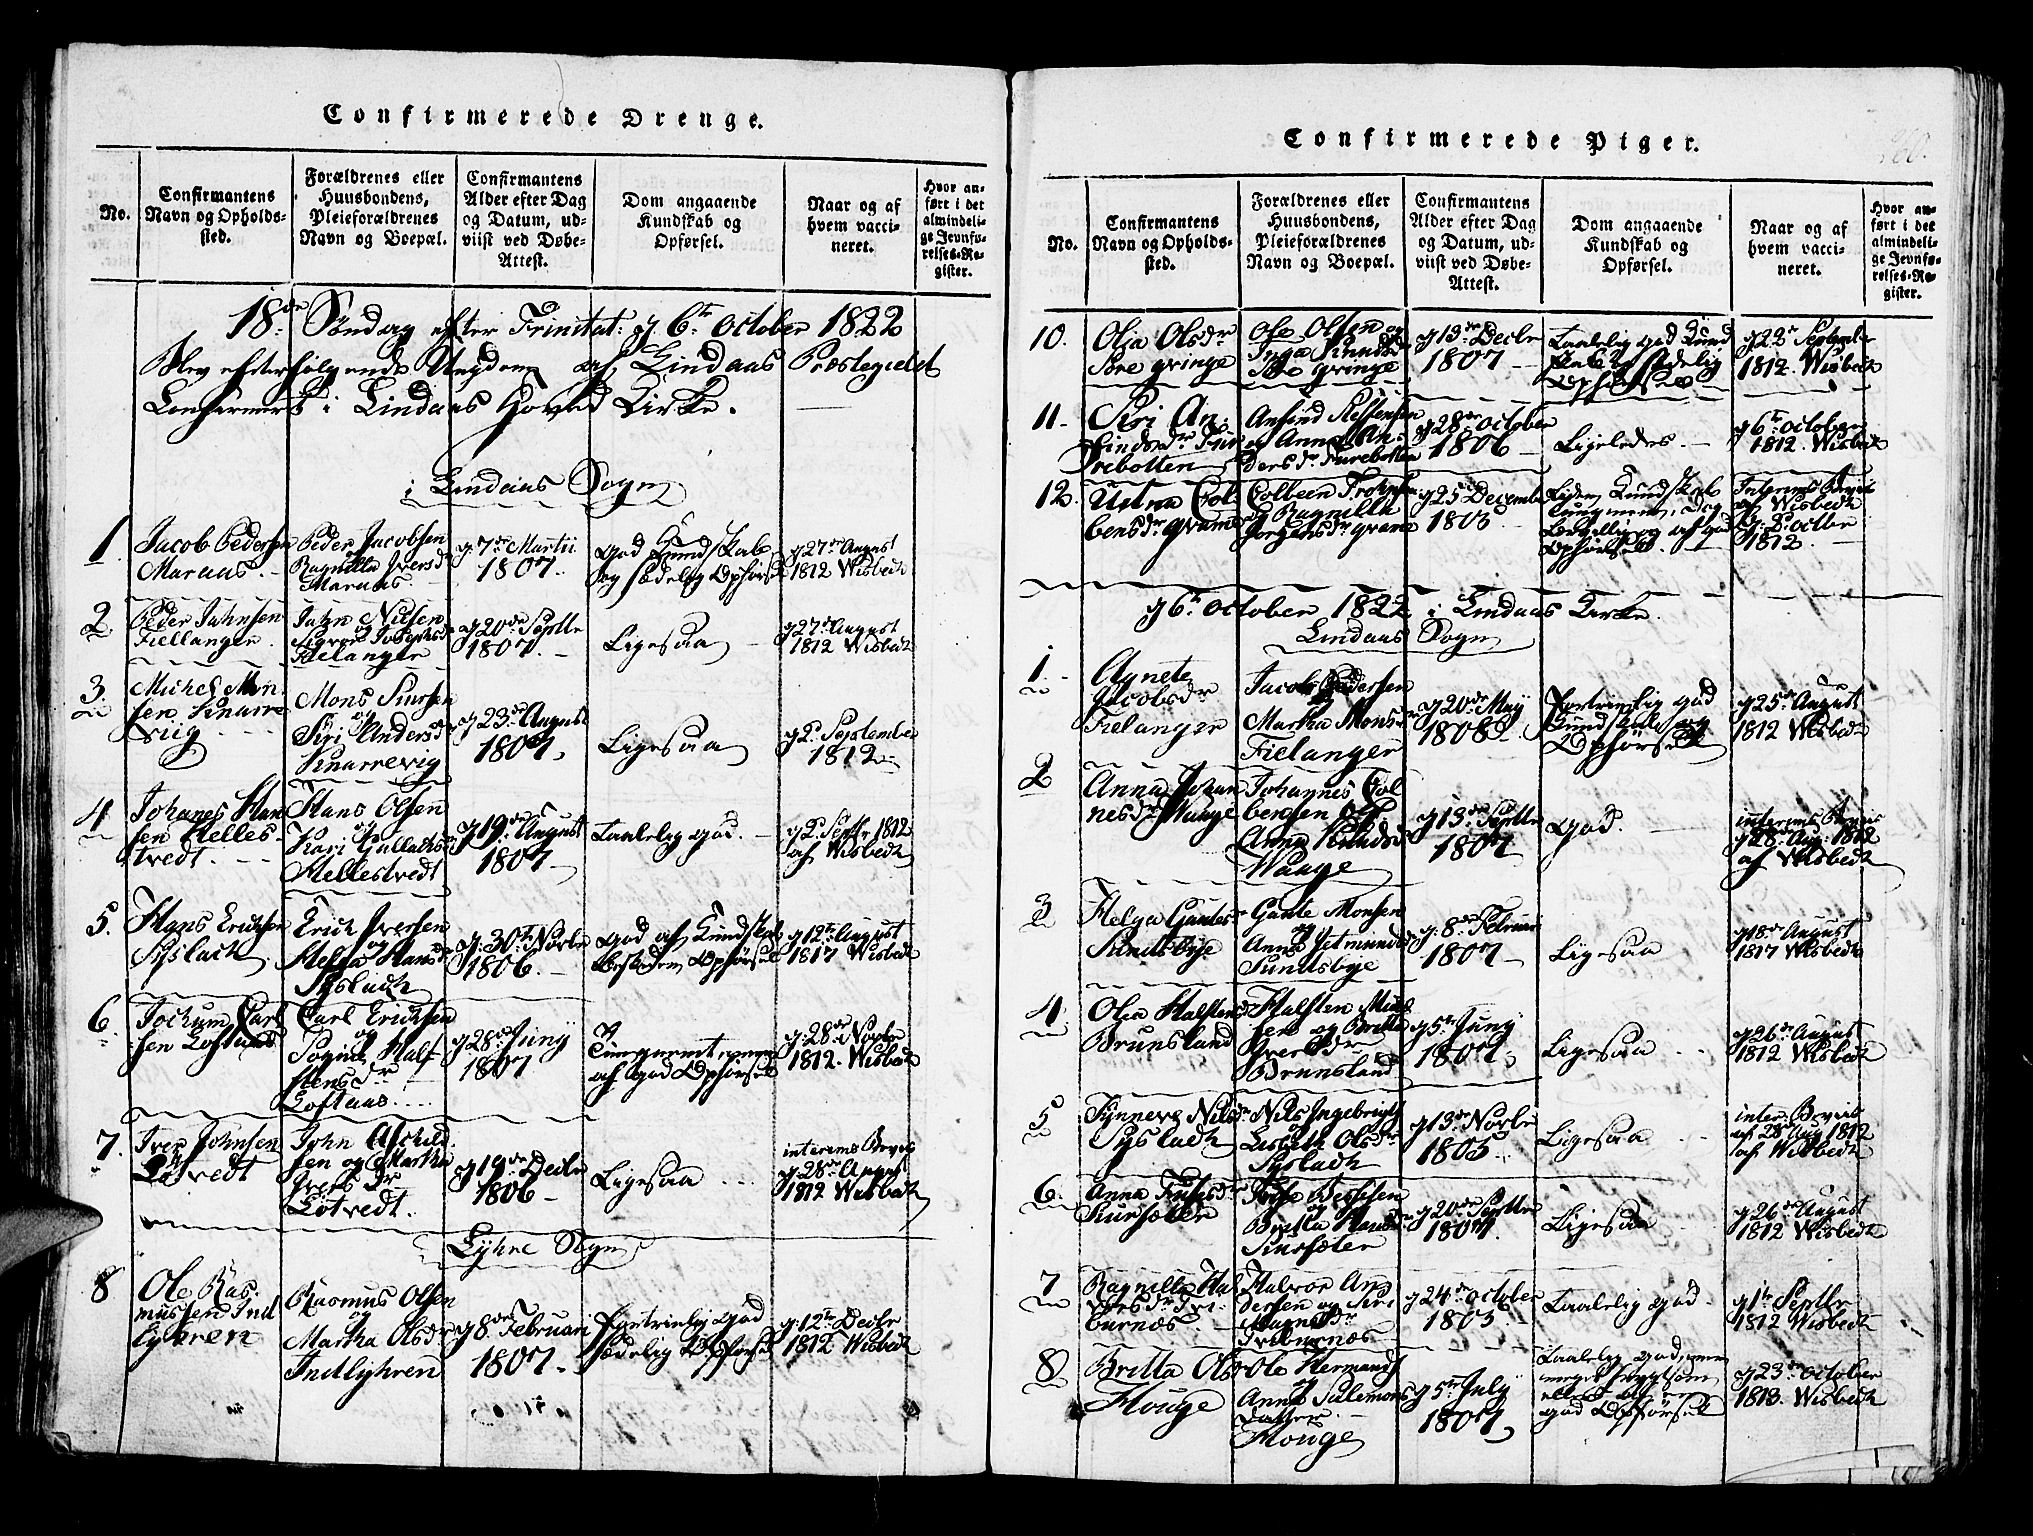 Confirmerede Drenge.
No.
Confirmantens
Navn og Opholds-
sted.
Forældrenes eller
Huusbondens,
Pleieforældrenes
Navn og Boepæl.
Confirmantens
Alder efter Dag
og Datum, ud-
viist ved Døbe-
Attest.
Dom angaaende
Kundskab og
Opførsel.
Naar og af
hvem vacci-
neret.
Hvor an-
ført i det
almindeli-
ge Jevnfø-
relses-Re-
gister.
18de Søndag efter Trinitat: d. 6te October 1822
Blev efterfølgende Ungdom af Lindaas Præstegield
Confirmert i Lindaas Hoved Kirke.
i Lindaas Sogn
1
Jacob Pedersen
Maraas.
Peder Jacobsen
Ragnilla Iversd
Maraas
d. 7de Martii
1807.
god Kundskab
og sædelig Opførsel
d 27de August
1812 Wisbech
2
Peder Jahnsen
Fiellanger.
Jahn Nilsen
og
Fielanger
d 20de Septbr
1807.
Ligesaa
d 27de August
1812 Wisbech
3.
Michel Mon
sen Knarre
viig
Mons
og
Siri Andersd
Knarrevig
d 23de August
1807.
Ligesaa
d 2. September
1812.
4
Johanes Han
sen Helles
tvedt.
Hans Olsen
og
Kari Gullachsd
Hellestvedt
d 19de August
1807
Taalelig god.
d 2. Septbr 1812
af Wisbech
5.
Hans Erichsen
Syslach
Erich Iversen
og
Helga Hansd
Syslach
d: 30te Novbr
1806.
god af Kundskab
beskeden Opførsel
d 12te August
1817 Wisbech
6.
Jochum Carl
sen Loftaas
Carl Erichsen
og
Sogni Half
stensdr
Loftaas
d 28de Juny
1807
af god Opførsel
d: 28de Novbr
1812. Wisbech
7.
Iver Johnsen
Lotvedt
John Aschild
sen og Martha
Iversdr
Lotvedt.
d 19de Decbr
1806
Ligesaa
interims Bevis
d: 28de August
1812 Wisbech
Lyhre Sogn
8
Ole Ras
mussen Ind
lyhren
Rasmus Olsen
og
Martha Olsdr
Indlyhren
d 8de Februari
1807
Fortrinlig god
sædelig Opførsel
d: 12te Decbr
1812 Wisbech
Confirmerede Piger.
260.
No.
Confirmantens
Navn og Opholds-
sted.
Forældrenes eller
Huusbondens,
Pleieforældrenes
Navn og Boepæl.
Confirmantens
Alder efter Dag
og Datum, ud-
viist ved Døbe-
Attest.
Dom angaaende
Kundskab og
Opførsel.
Naar og af
hvem vacci-
neret.
Hvor an-
ført i det
almindeli-
ge Jevnfø-
relses-Re-
gister.
10.
Olia Olsdr
gringe
Ole Olsen og
Inga Knudsd
gringe
d 13de Decbr
1807
Taalelig god Kund
skab og sædelig
Opførsel
d 22de September
1812. Wisbech
11.
Siri An
findsdr Fur
rebotten
Anfind Steffensen
og Anna An
dersdr Furebotten
d 28de October
1806
Ligeledes.
d 6te October
1812. Wisbech
12.
Col
bensdr
Colbeen
og Ragnilla
Jørgensdr
d 25 December
1805
Liden Kundskab
af god
Opførsel.
Interims Bevis
af Wisbech
d: 8 Octbr
1812.
d 6te October 1822 i Lindaas Kirke.
Lindaas Sogn
1.
Agnete
Jacobsdr
Fielanger
Jacob Pedersen
og
Martha Monsdr
Fielanger
d 20de May
1808
Fortrinlig god
Kundskab og
Opførsel
d 25de August
1812 Wisbech
2
Anna Johan
nesdr Waage
Johannes Col
bensen og
Anna Knudsd
Waage
d 13de Septbr
1807
god.
interims Bevis
d 28de Aug: 1812
af Wisbech
3
Helga Gautes
Sundsbye
Gaute Monsen
og
Anna Jetmunds
Sundsbye
d. 8de Februari
1807
Ligesaa
d 18de August
1817 Wisbech
4
Olia Halstend
Brunsland
Halsten
sen og Britta
Iversdr
Brunsland
d 5te Juny
1807
Ligesaa
d 26de August
1812 Wisbech
5
Synneve Nilsdr
Syslach
Nils Ingebrigts
og
Lisbeth Olsdr
Syslach
d 13de Novbr
1805
Ligesaa
interi: Beviis
af 28 Aug 1812
af Wisbech
6.
Anna
og
Britta Hansdr
d 20de Septbr
1807.
Ligesaa
d 26de August
1812 Wisbech
7
Ragnilla Hal
vorsdr Tvi
burnæs.
Halvor An
dersen og Siri
Magnesdr
Tviburnæs
d 24de October
1805.
Taalelig god
d 1te Septbr
1812 Wisbech
8
Britta Olsdr
Houge
Ole Hermands
og
Anna Salemons
datter
Houge
d 5te July
1807
Taalelig god, men
meget
ellers af en
god Opførsel
d 23de October
1813. Wisbech